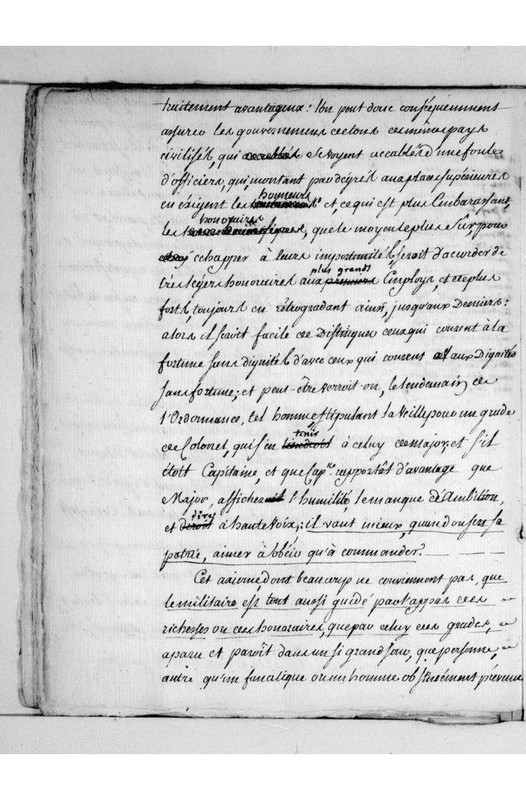 traitement avantageux: l'on peut donc conséquemment
assurer les gouvernemens de tous les mêmes pays
civilisés, qui se voyent accablés d'une foule
d'officiers, qui, montant par degrés aux places supérieures
en exigent les honneurs et, ce qui est plus embarassant,
les honoraires, que le moyen le plus sur pour
echapper à leurs importunités seroit d'accorder de
très légers honoraires aux plus grands Employs et de plus
forts, toujours en rétrogradant ainsi, jusqu'aux Derniers:
alors il seroit facile de Distinguer ceux qui courent à la
fortune sans dignités d'avec ceux qui courent aux Dignités
sans fortune; et peut-être verroit-on, le lendemain de
l'Ordonnance, tel homme, stipulant la veille pour un grade
de Colonel, qui s'en tenir à celuy de major; et s'il
étoit Capitaine, et que Cap.ne rapportât d'avantage que
Major, afficher l'humilité, le manque d'Ambition,
et dire à haute voix; il vaut mieux, quand on sert sa
patrie, aimer à obéir qu'à commander.
Cet axiome, dont beaucoup ne conviennent pas, que
le militaire est tout aussi guidé par l'appas des
richesses ou des honoraires, que par celuy des grades, a
paru et paroît dans un si grand jour, que personne,
autre qu'un fanatique ou un homme obstinément prévenu